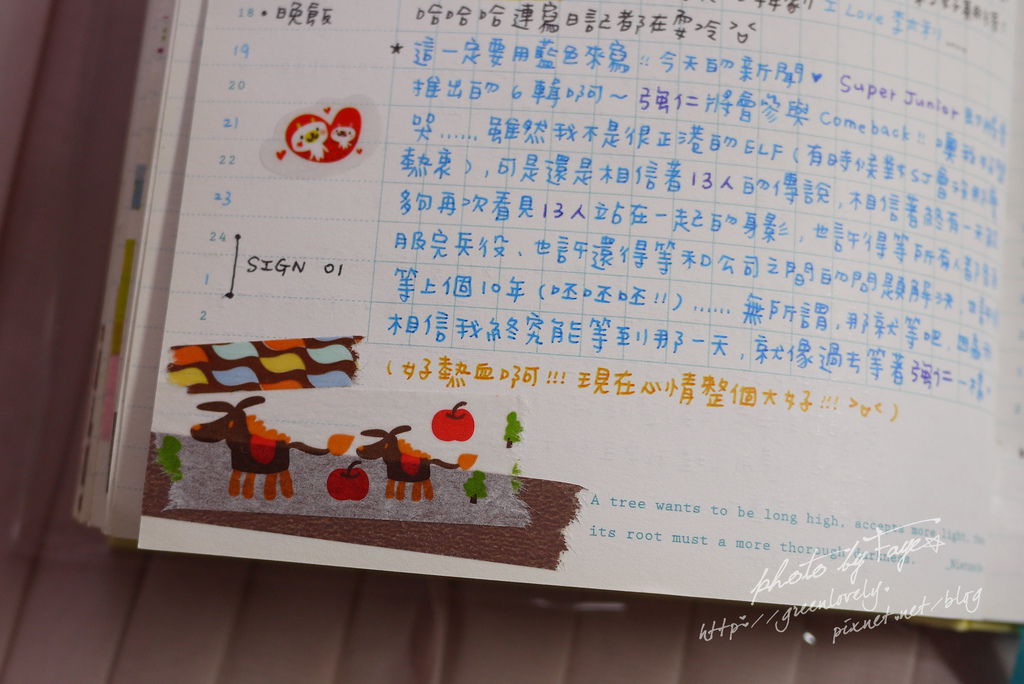 I Love 李大利
18 • 晚飯
哈哈哈 連寫日記都在耍冷 >ㅂ<
19
★ 這一定要用藍色來寫!! 今天的新聞♥ Super Junior
20
推出的 6 輯啊~ 強仁將會參與 Comeback!! 噢我好想
21
哭...... 雖然我不是很正港的 ELF (有時候對SJ會
22
熱衷), 可是還是相信著 13人的傳說, 相信著終有一天
23
夠再次看見 13人站在一起的身影, 也許得等所有人都
24
服完兵役、也許還得等和公司之間的問題解決, 也許
SIGN 01
1
等上個10年 (呸呸呸!!) ...... 無所謂, 那就等吧,
2
相信我終究能等到那一天, 就像過去等著強仁一樣。
(好熱血啊!!! 現在心情整個大好!!! >ㅂ<)
A tree wants to be long high, accepts more light. The
its root must a more thorough darkness. _Nietzsche
photo by Faye☆
http://greenlovely.
pixnet.net/blog